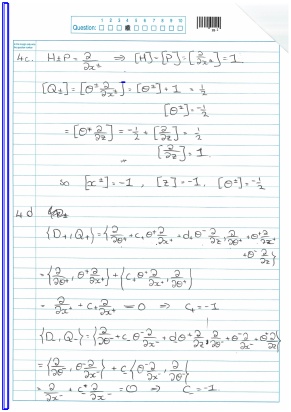 Question: 1 2 3 4 5 6 7 8 9 10
4c. H±P = ∂/∂x± ⇒ [H] = [P] = [∂/∂x±] = 1
[Q±] = [θ± ∂/∂x±] = [θ±] + 1 = ½
[θ±] = -½
= [θ± ∂/∂z] = -½ + [∂/∂z] = ½
[∂/∂z] = 1.
so [x±] = -1, [z] = -1, [θ±] = -½
4d D±
{D+, Q+} = {∂/∂θ+ + c+θ+ ∂/∂x+ + d+θ- ∂/∂z, ∂/∂θ+ + θ+ ∂/∂x+
+ θ- ∂/∂z}
= {∂/∂θ+, θ+ ∂/∂x+} + {c+θ+ ∂/∂x+, ∂/∂θ+}
= ∂/∂x+ + c+ ∂/∂x+ = 0 ⇒ c+ = -1
{D-, Q-} = {∂/∂θ- + c-θ- ∂/∂x- + dθ+ ∂/∂z, ∂/∂θ- + θ- ∂/∂x- + θ+ ∂/∂z}
= {∂/∂θ-, θ- ∂/∂x-} + c {θ- ∂/∂x-, ∂/∂θ-}
= ∂/∂x- + c- ∂/∂x- = 0 ⇒ c = -1